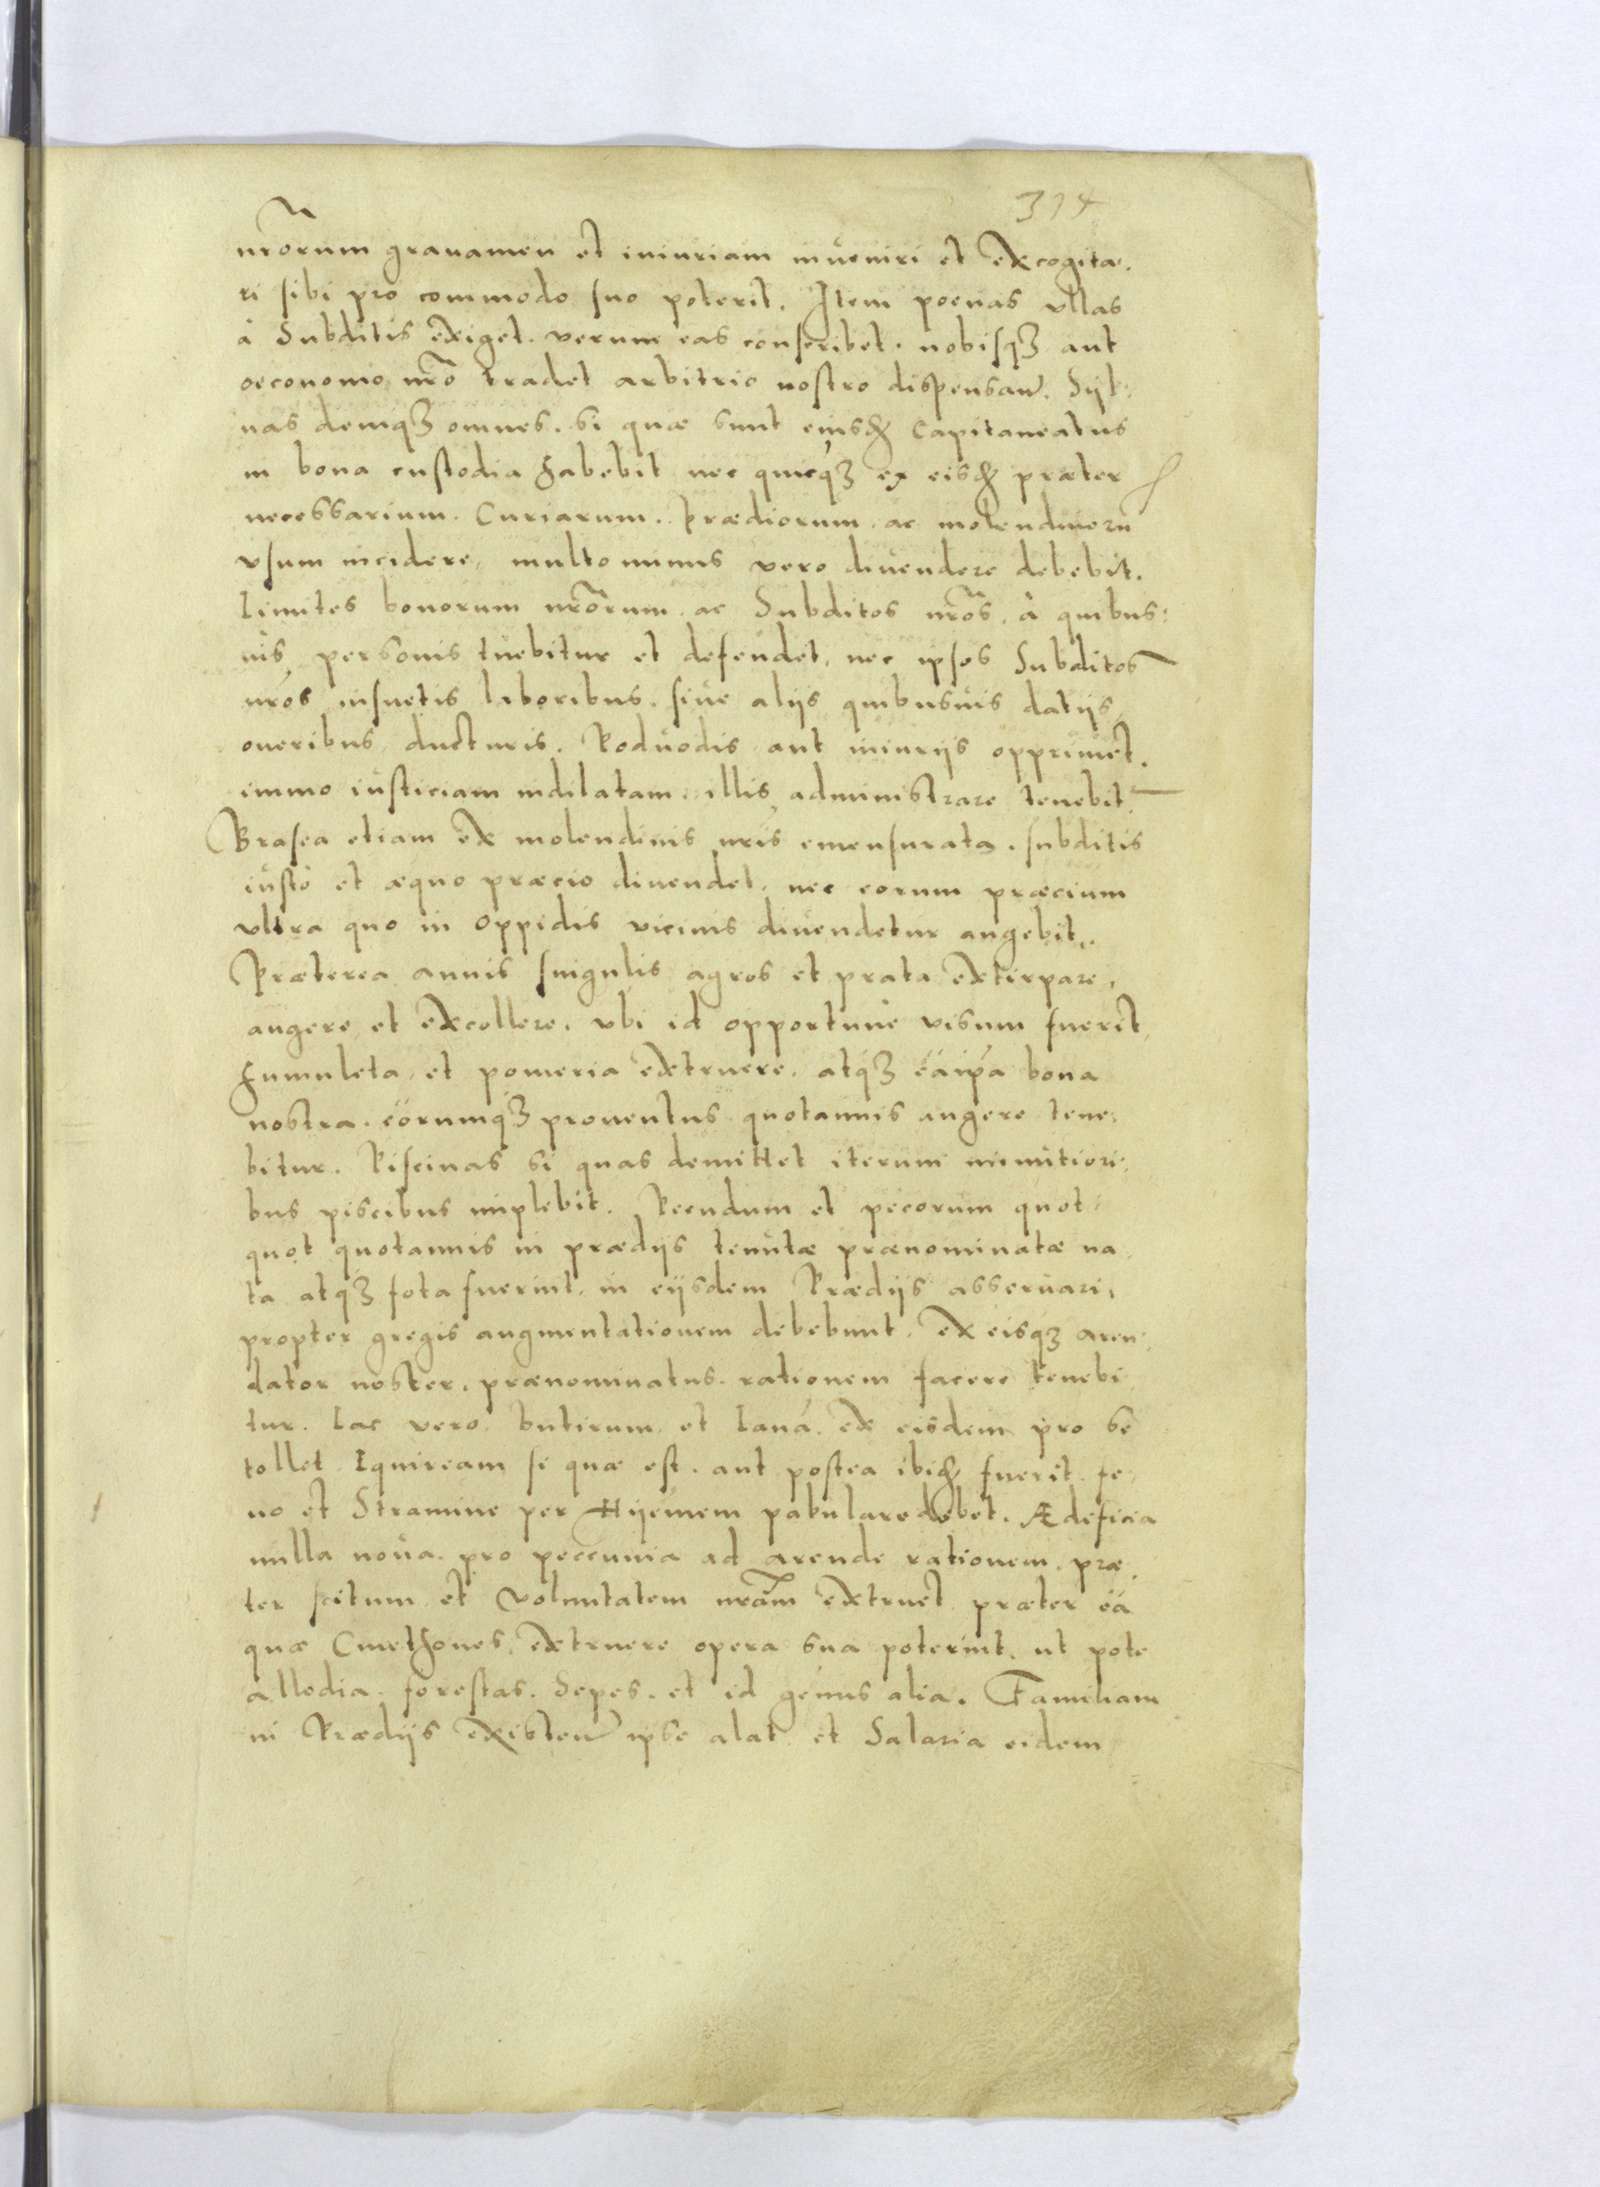 314
nrõrum grauamen et iniuriam inueniri et excogita,
ri sibi pro commodo suo poterit. Item poenas ullas
à Subditis exiget. verum eas conscribet. nobisqȝ aut
oeconomo nrõ tradet arbitrio nostro dispensan̄. Syl:
uas deniqȝ omnes. si quæ sunt eiusđ Capitaneatus
in bona custodia habebit nec quicqȝ ex eisđ præter
necessarium. Curiarum. Prædiorum. ac molendinorū
usum incidere, multo minus vero diuendere debebit.
Limites bonorum nrõrum. ac Subditos nrõs. à quibus:
uis personis tuebitur et defendet, nec ipsos Subditos
nrõs insuetis laboribus. siue alijs quibusuis datijs
oneribus ducturis. Poduodis aut iniurijs opprimet.
immo iusticiam indilatam. illis administrare tenebit̄
Brasea etiam ex molendinis nris emensurata. subditis
iusto et æquo præcio diuendet. nec eorum præcium
ultra quo in oppidis vicinis diuendetur augebit.
Præterea annis singulis agros et prata extirpare,
augere et excollere. ubi id opportune visum fuerit
humuleta, et pomeria extruere. atqȝ ea ipsa bona
nostra. eorumqȝ prouentus quotannis augere tene,
bitur. Piscinas si quas demittet iterum minutiori,
bus piscibus implebit. Pecudum et pecorum quot:
quot quotannis in prædijs tenutæ prænominatæ na,
ta atqȝ fota fuerint, in eijsdem Prædijs asseruari,
propter gregis augmentationem debebunt. ex eisqȝ aren,
dator noster. prænominatus. rationem facere tenebi
tur. Lac vero butirum et lanã. ex eisdem pro se
tollet Equiream si quæ est. aut postea ibiđ fuerit. fe,
no et Stramine per Hyemem pabulare debet. Ædeficia
nulla noua. pro peccunia ad arende rationem. præ,
ter scitum et voluntatem nrãm extruet præter ea
quæ Cmethones, extruere opera sua poterint. ut pote
allodia. forestas. Sepes. et id genus alia. Familiam
in Prædijs existen̄ ipse alat et Salaria eidem